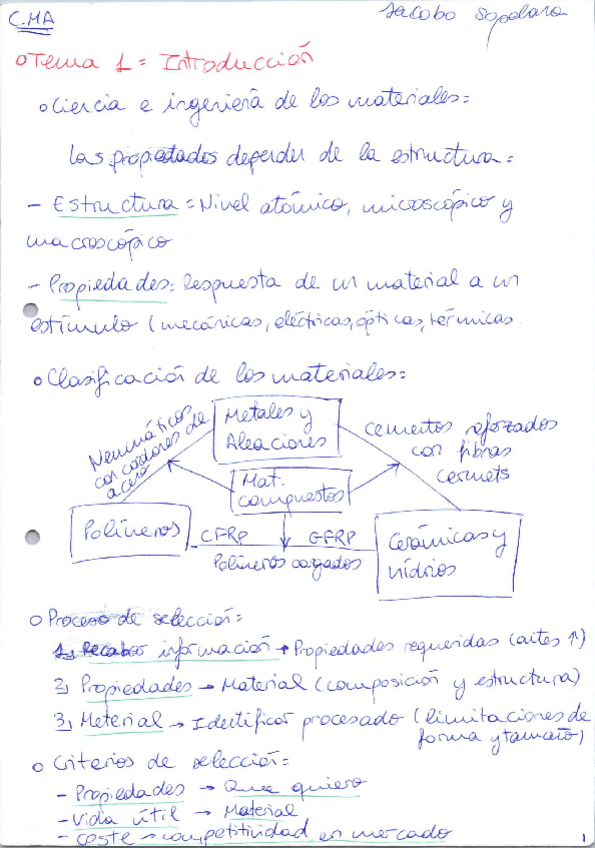 C.MA
Jacobo Sopelana
o Tema 1 = Introducción
o Ciencia e ingeniería de los materiales=
Las propiedades dependen de la estructura=
- Estructura = Nivel atómico, microscópico y
macroscópico
- Propiedades= Respuesta de un material a un
estímulo (mecánicas, eléctricas, ópticas, térmicas
o Clasificación de los materiales=
Neumáticos
con cordones de
acero
Metales y
Aleaciones
cementos reforzados
con fibras
cermets
Mat.
compuestos
Polímeros
CFRP
GFRP
Polímeros cargados
Cerámicas y
vidrios
o Proceso de selección=
1) Recabar información → Propiedades requeridas (antes ↑)
2) Propiedades → Material (composición y estructura)
3) Meterial → Identificar procesado (limitaciones de
forma y tamaño)
o Criterios de selección=
- Propiedades → Que quiero
- Vida útil → Material
- coste → competitividad en mercado
1